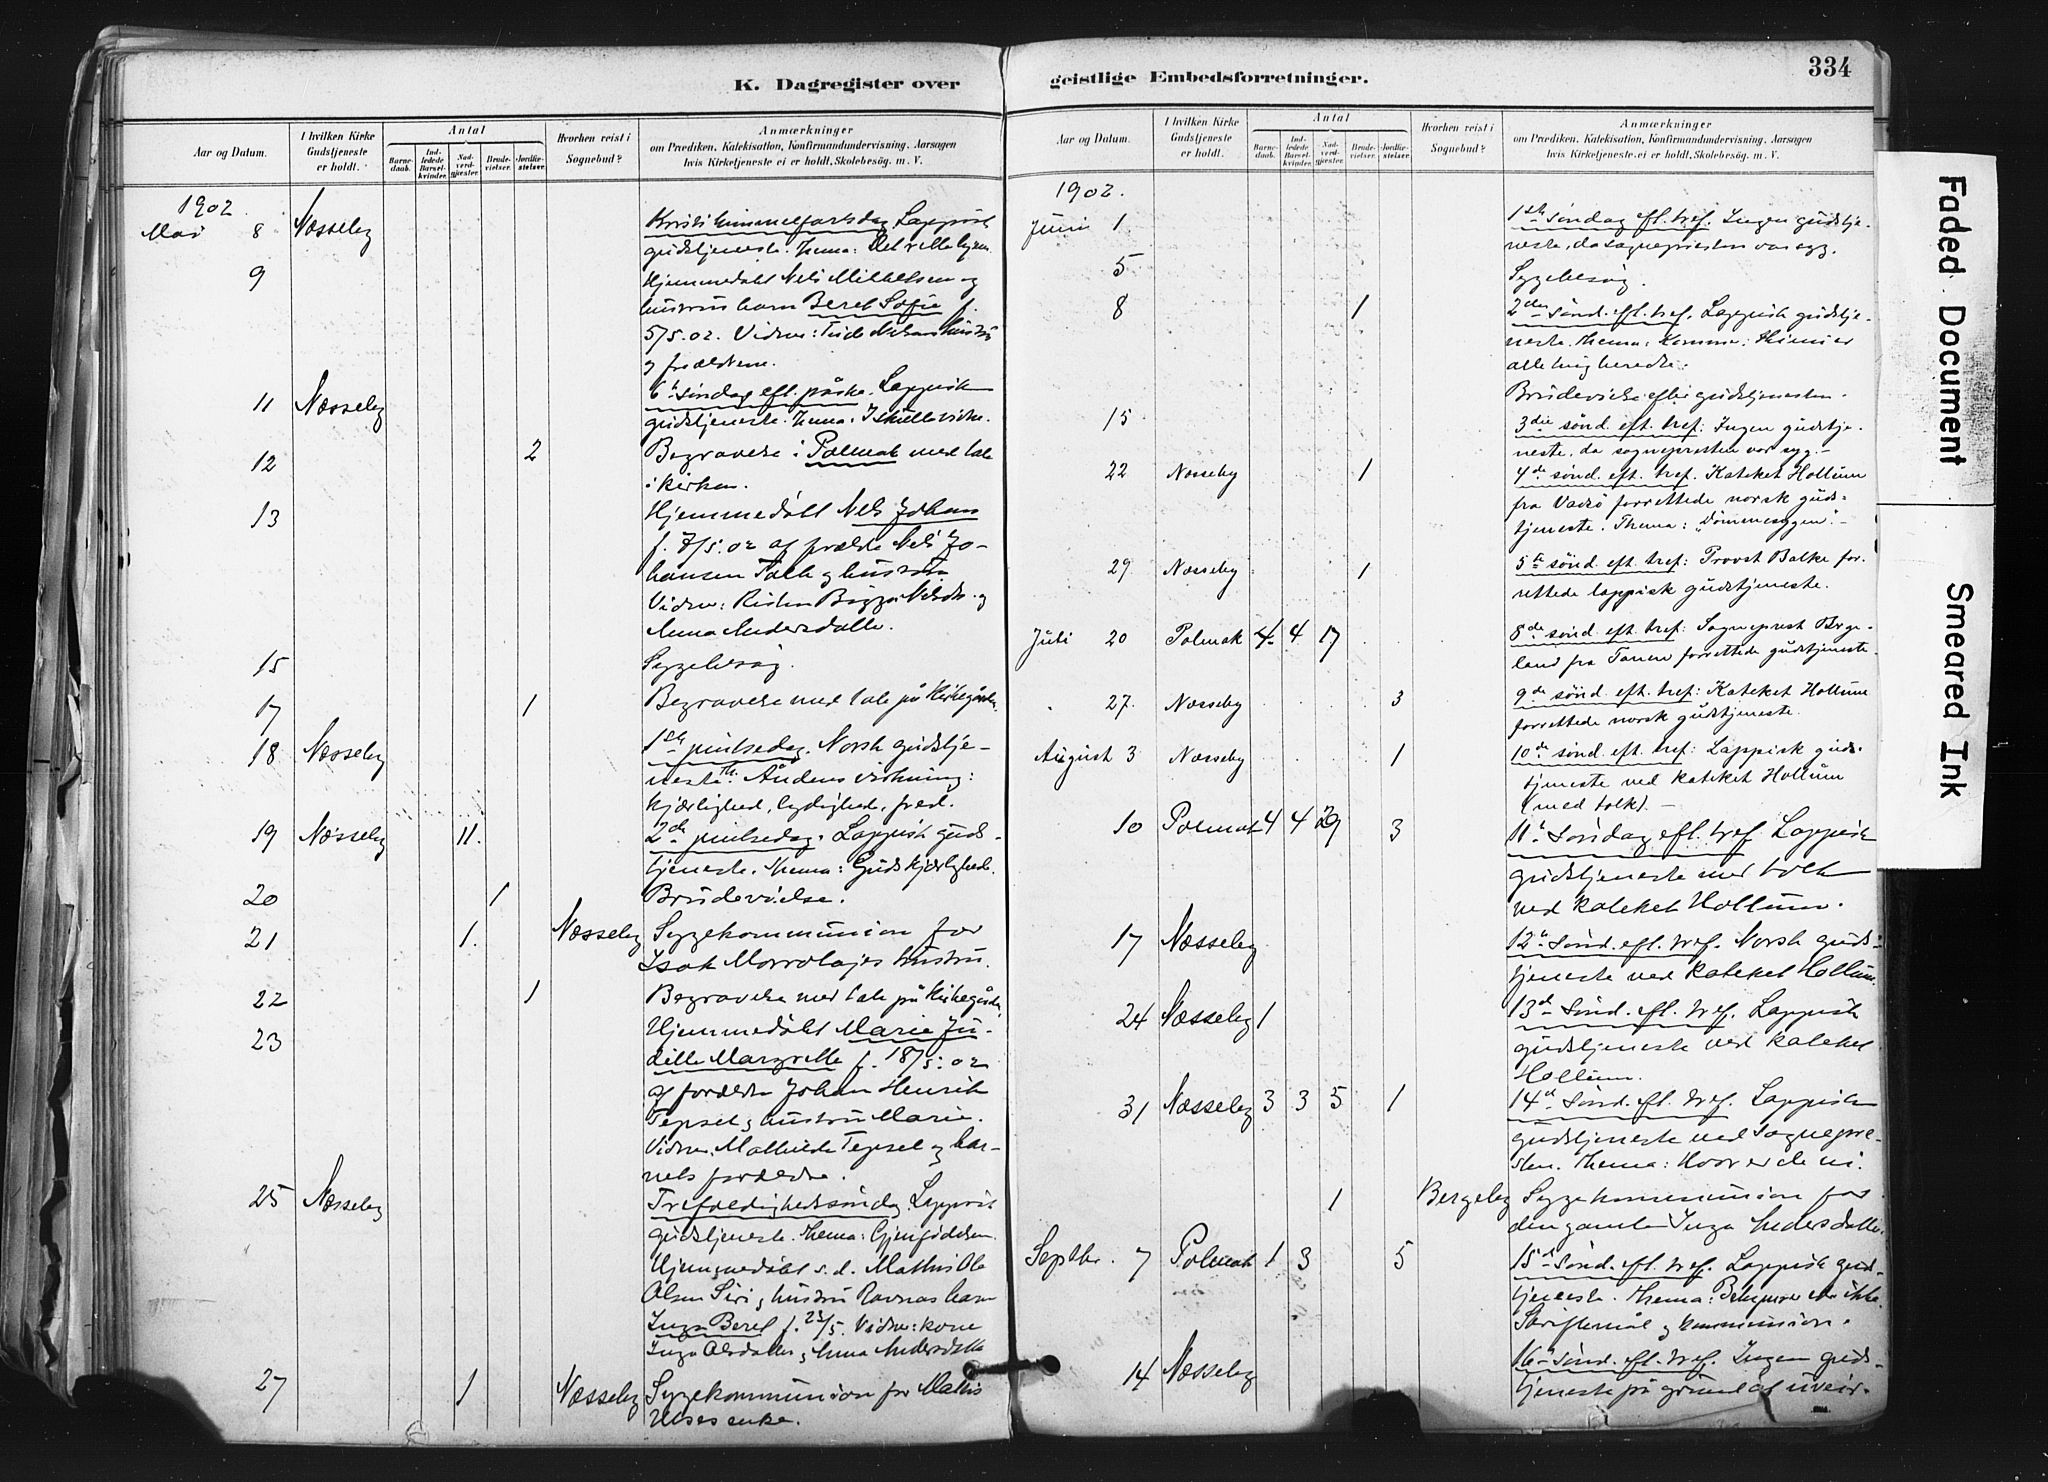 K. Dagregister over
Aar og Datum.
I hvilken Kirke Gudstjeneste er holdt.
Antal
Barne-daab.
Ind-ledede Barsel-kvinder.
Nad-verd-gjæster.
Brude-vielser.
Jordfæ-stelser.
Hvorhen reist i Sognebud?
Anmærkninger
om Prædiken, Katekisation, Konfirmandundervisning, Aarsagen
hvis Kirketjeneste ei er holdt, Skolebesøg. m. V.
1902.
Mai 8 Næsseby Kristi himmelfartsdag Lappisk
gudstjeneste. Thema: Det rette hjem
9 Hjemmedøbt Nels Mikkelsen og
hustrus barn Beret Sofie f.
5/5.02. Vidner:
og forældrene.
11 Næsseby 6te søndag eft. påske. Lappisk
gudstjeneste. Thema: I skulle vidne.
12 2 Begravelse i Polmak med tale
i kirken.
13 Hjemmedøbt Nels Johan
f. 7/5.02 af forældre Nels Jo-
hansen og hustru
Vidner: Nilsdr. og
Anna Andersdatter.
15 Sygebesøg.
17 1 Begravelse med tale på Kirkegården.
18 Næsseby 1ste pintsedag. Norsk gudstje-
neste. Th: Åndens virkning:
kjærlighed, lydighed, fred.
19 Næsseby 11. 2den pintsedag. Lappisk guds-
tjeneste. Thema: Guds kjærlighed.
20 1 Brudevielse.
21 1. Næsseby Sygekommunion for
Isak hustru.
22 1 Begravelse med tale på Kirkegården
23 Hjemmedøbt Marie Ju-
ditte Margrette f. 18/5.02
af forældre Johan Henrik
Tepsel og hustru Marie.
Vidner: Mathilde Tepsel og bar-
nets forældre.
25 Næsseby Trefoldighedssøndag Lappisk
gudstjeneste. Thema: Gjenfødelsen.
Hjemmedøbt s.d. Mathis Ole
Olsen Siri og hustru Ravnas barn
Inga Beret f. 23/5. Vidner: kone
Inga Olsdatter og Anna Andersdatter
27 1 Næsseby Sygekommunion for Mathis
enke.
geistlige Embedsforretninger.
334
Aar og Datum.
I hvilken Kirke Gudstjeneste er holdt.
Antal
Barne-daab.
Ind-ledede Barsel-kvinder.
Nad-verd-gjæster.
Brude-vielser.
Jordfæ-stelser.
Hvorhen reist i Sognebud?
Anmærkninger
om Prædiken, Katekisation, Konfirmandundervisning, Aarsagen
hvis Kirketjeneste ei er holdt, Skolebesøg. m. V.
1902.
Juni 1 1ste søndag eft. tref. Ingen gudstje-
neste, da sognepresten var syg.
5 Sygebesøg.
8 1 2den sønd. eft. tref. Lappisk gudstje-
neste. Thema: Kommer: Thi nu er
alle ting beredte.
Brudevielse efter gudstjenesten.
15 3die sønd. eft. tref: Ingen gudstje-
neste, da sognepresten var syg. -
22 Næsseby 1 4de sønd. eft. tref. Kateket Hollum
fra Vadsø forrettede norsk guds-
tjeneste. Thema: "Dømmesygen". -
29 Næsseby 1 5te sønd. eft. tref: Provst Balke for-
rettede lappisk gudstjeneste.
Juli 20 Polmak 4 4 17 8de sønd. eft. tref: Sogneprest Byge-
land fra Tanen forrettede gudstjeneste.
27. Næsseby 3 9de sønd. eft. tref: Kateket Hollum
forrettede norsk gudstjeneste.
August 3 Næsseby 1 10de sønd. eft. tref: Lappisk guds-
tjeneste ved kateket Hollum
(med tolk). -
10 Polmak 4 4 29 3 11te Søndag eft. tref Lappisk
gudstjeneste med tolk
ved kateket Hollum.
17 Næsseby 12te Sønd. eft. tref. Norsk guds-
tjeneste ved kateket Hollum.
24 Næsseby 1 13de Sønd. eft. tref. Lappisk
gudstjeneste ved kateket
Hollum.
31 Næsseby 3 3 5 1 14de Sønd. eft. tref. Lappisk
gudstjeneste ved Sognepre-
sten. Thema: Hvor er de ni.
1 Bergeby Sygekommunion for
den gamle Inga Andersdatter.
Septbr. 7 Polmak 1 3 5 15de Sønd. eft. tref. Lappisk gud-
tjeneste. Thema: Bekymrer Eder ikke.
Skriftemål og kommunion.
14 Næsseby 16de Sønd. eft. tref. Ingen guds-
tjeneste på grund af uveir.
Faded Document
Smeared Ink